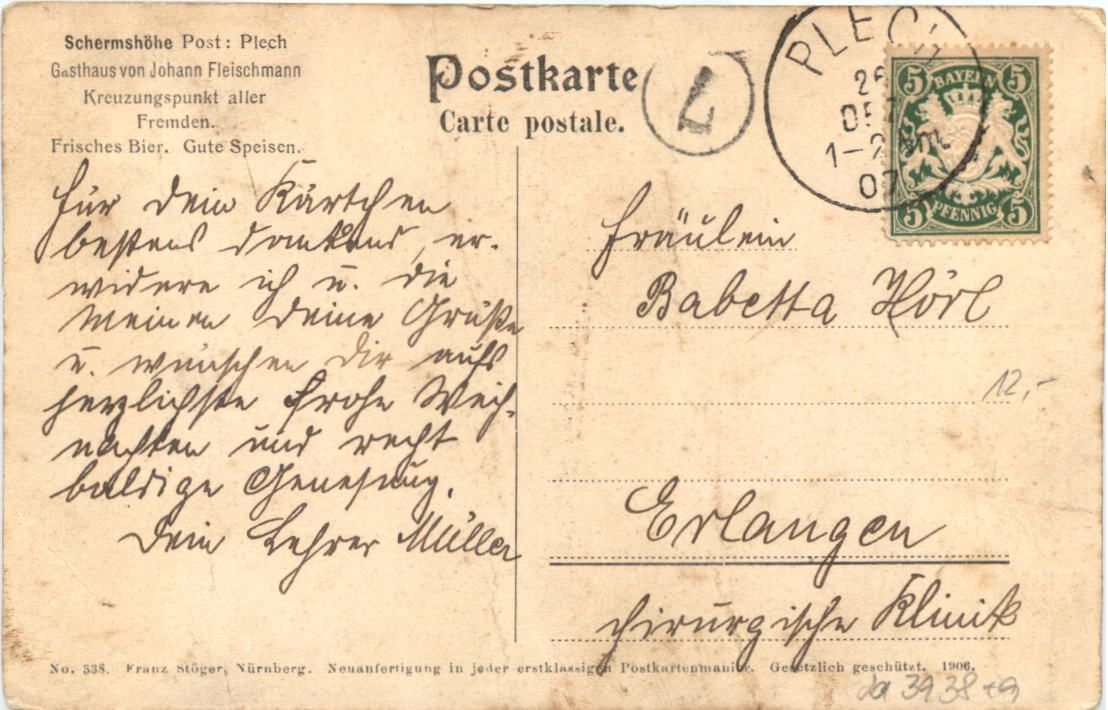 Schermshöhe Post: Plech
Gasthaus von Johann Fleischmann
Kreuzungspunkt aller
Fremden.
Frisches Bier. Gute Speisen.
Postkarte
Carte postale.
7
PLECH
26
DEZ
1–2 Nm.
07
5 BAYERN 5
5 PFENNIG 5
Für dein Kärtchen
bestens dankend, er-
widere ich u. die
Meinen deine Grüße
u. wünschen dir aufs
herzlichste frohe Weih-
nachten und recht
baldige Genesung.
Dein Lehrer Müller
Fräulein
Babetta Hörl
12,-
Erlangen
chirurgische Klinik
No. 338. Franz Stöger, Nürnberg. Neuanfertigung in jeder erstklassigen Postkartenmanier. Gesetzlich geschützt. 1906.
3938